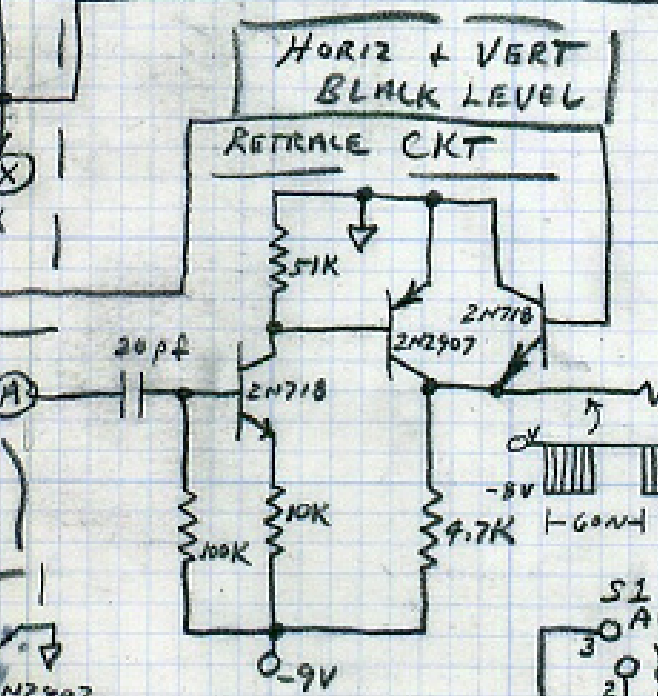 HORIZ + VERT
BLACK LEVEL
RETRACE CKT
X
51K
2N718
20pf
2N2907
A
2N718
0V
-8V
10K
60N
100K
4.7K
S1
A
3
-9V
2
N2907